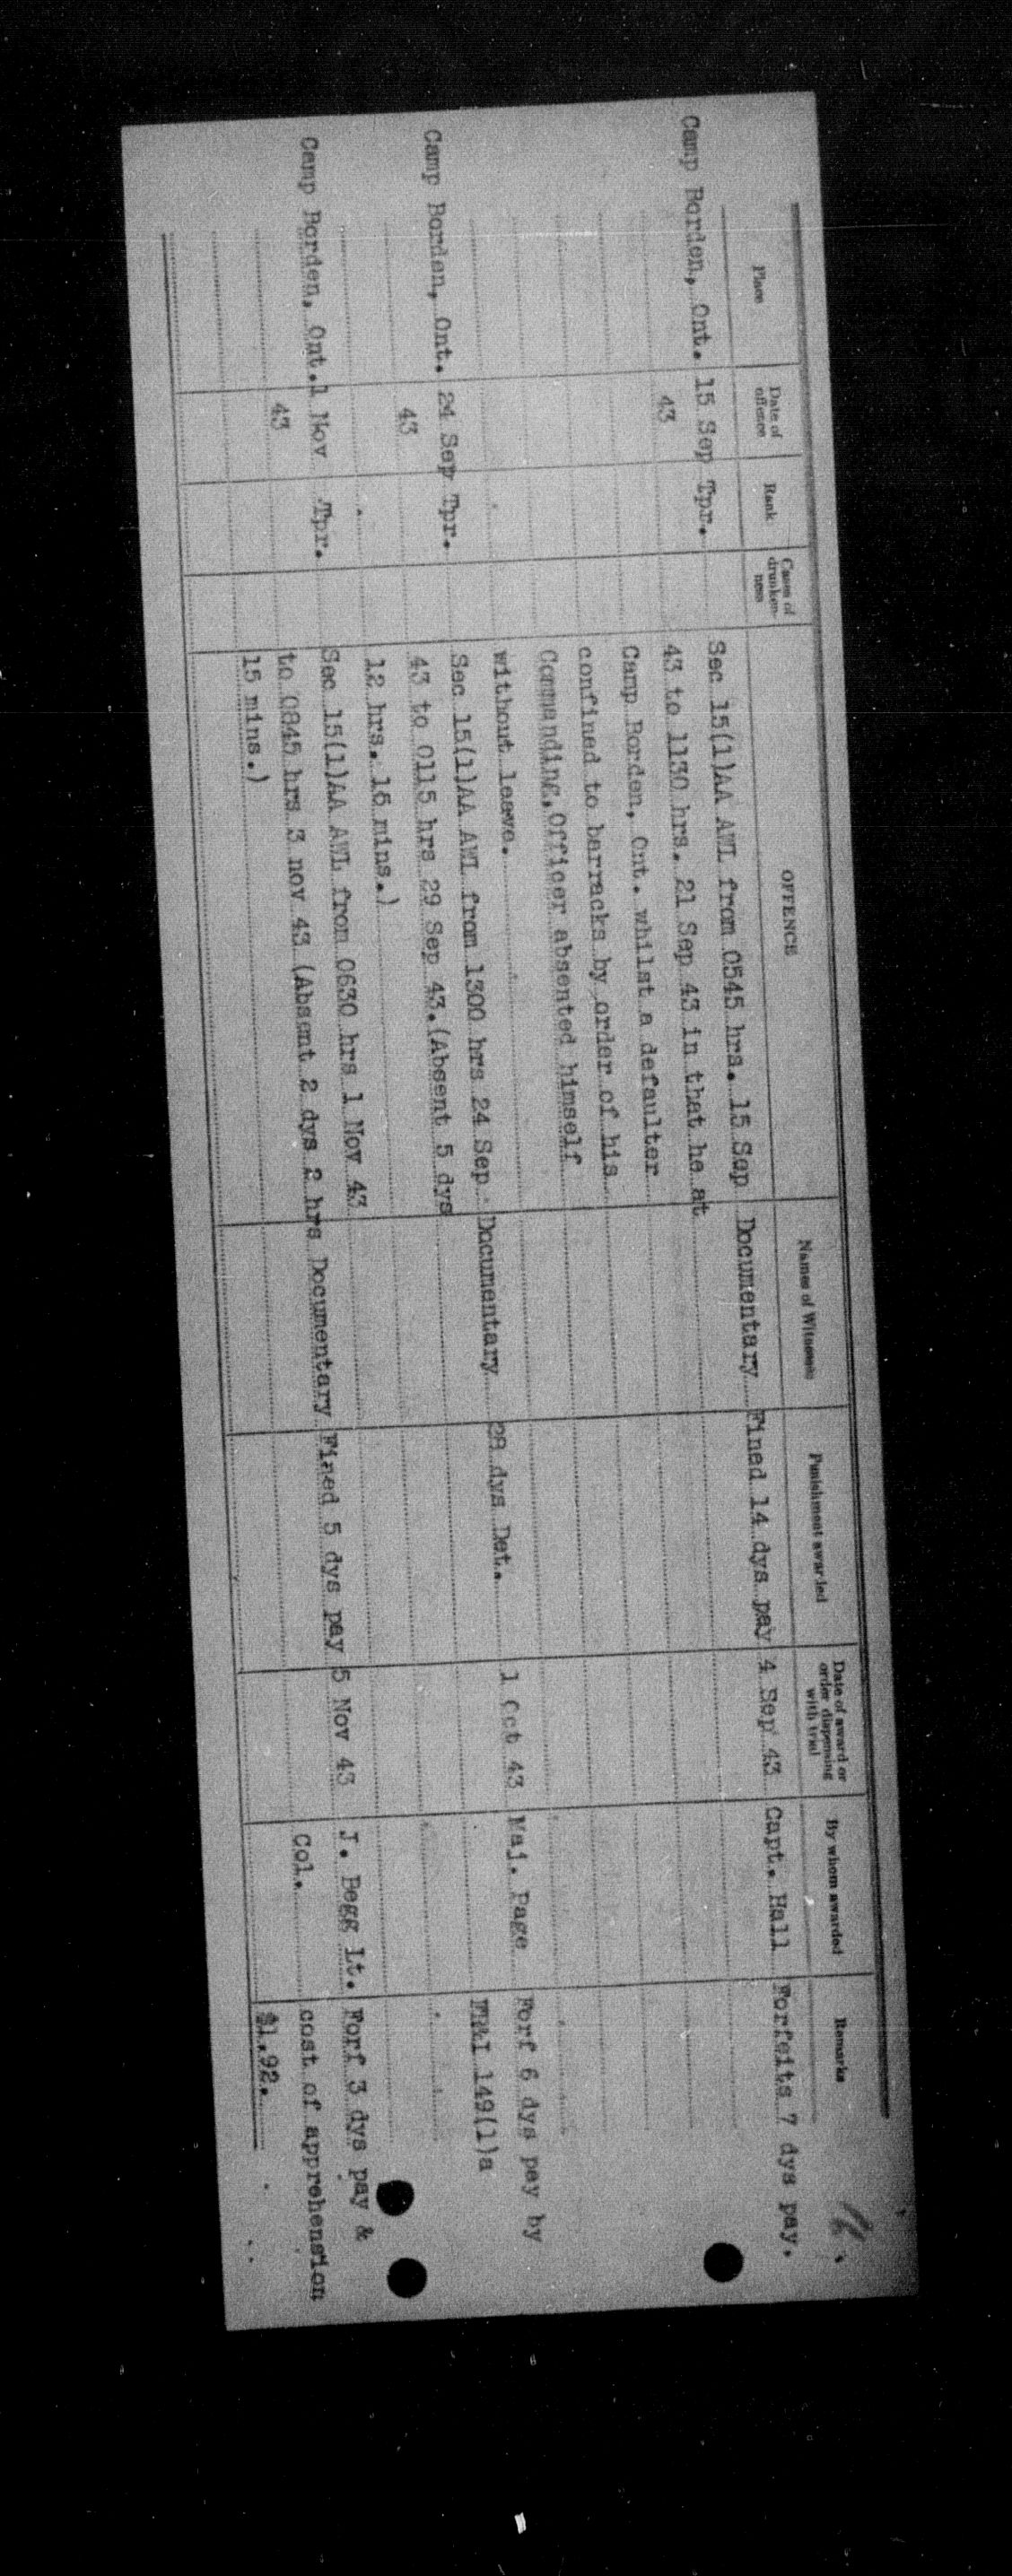 Place
Date of offence
Rank
Cases of drunken-ness
OFFENCE
Names of Witnesses
Punishment awarded
Date of award or order dispensing with trial
By whom awarded
Remarks
Camp Borden, Ont. 15 Sep Tpr. Sec 15(1)AA AWL from 0545 hrs. 15 Sep Documentary Fined 14 dys pay 4 Sep 43 Capt. Hall Forfeits 7 dys pay.
43 43 to 1130 hrs. 21 Sep 43 in that he at
Camp Borden, Ont. whilst a defaulter
confined to barracks by order of his
Commanding Officer absented himself
without leave.
Camp Borden, Ont. 24 Sep Tpr. Sec 15(1)AA AWL from 1300 hrs 24 Sep Documentary 28 dys Det. 1 Oct 43 Maj. Page Forf 6 dys pay by
43 43 to 0115 hrs 29 Sep 43.(Absent 5 dys FR&I 149(1)a
12 hrs. 15 mins.)
Camp Borden, Ont.1 Nov Tpr. Sec 15(1)AA AWL from 0630 hrs 1 Nov 43
43 to 0845 hrs 3 nov 43 (Absent 2 dys 2 hrs Documentary Fined 5 dys pay 5 Nov 43 J. Begg Lt. Forf 3 dys pay &
15 mins.) Col. cost of apprehension
$1.92.